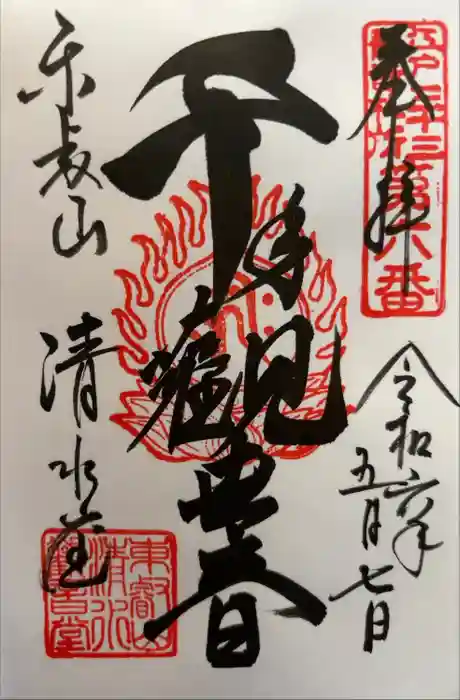 奉拝
令和六年
五月七日
千手
觀世音
東叡山
清水堂
第六番
東叡山
清水
観音堂